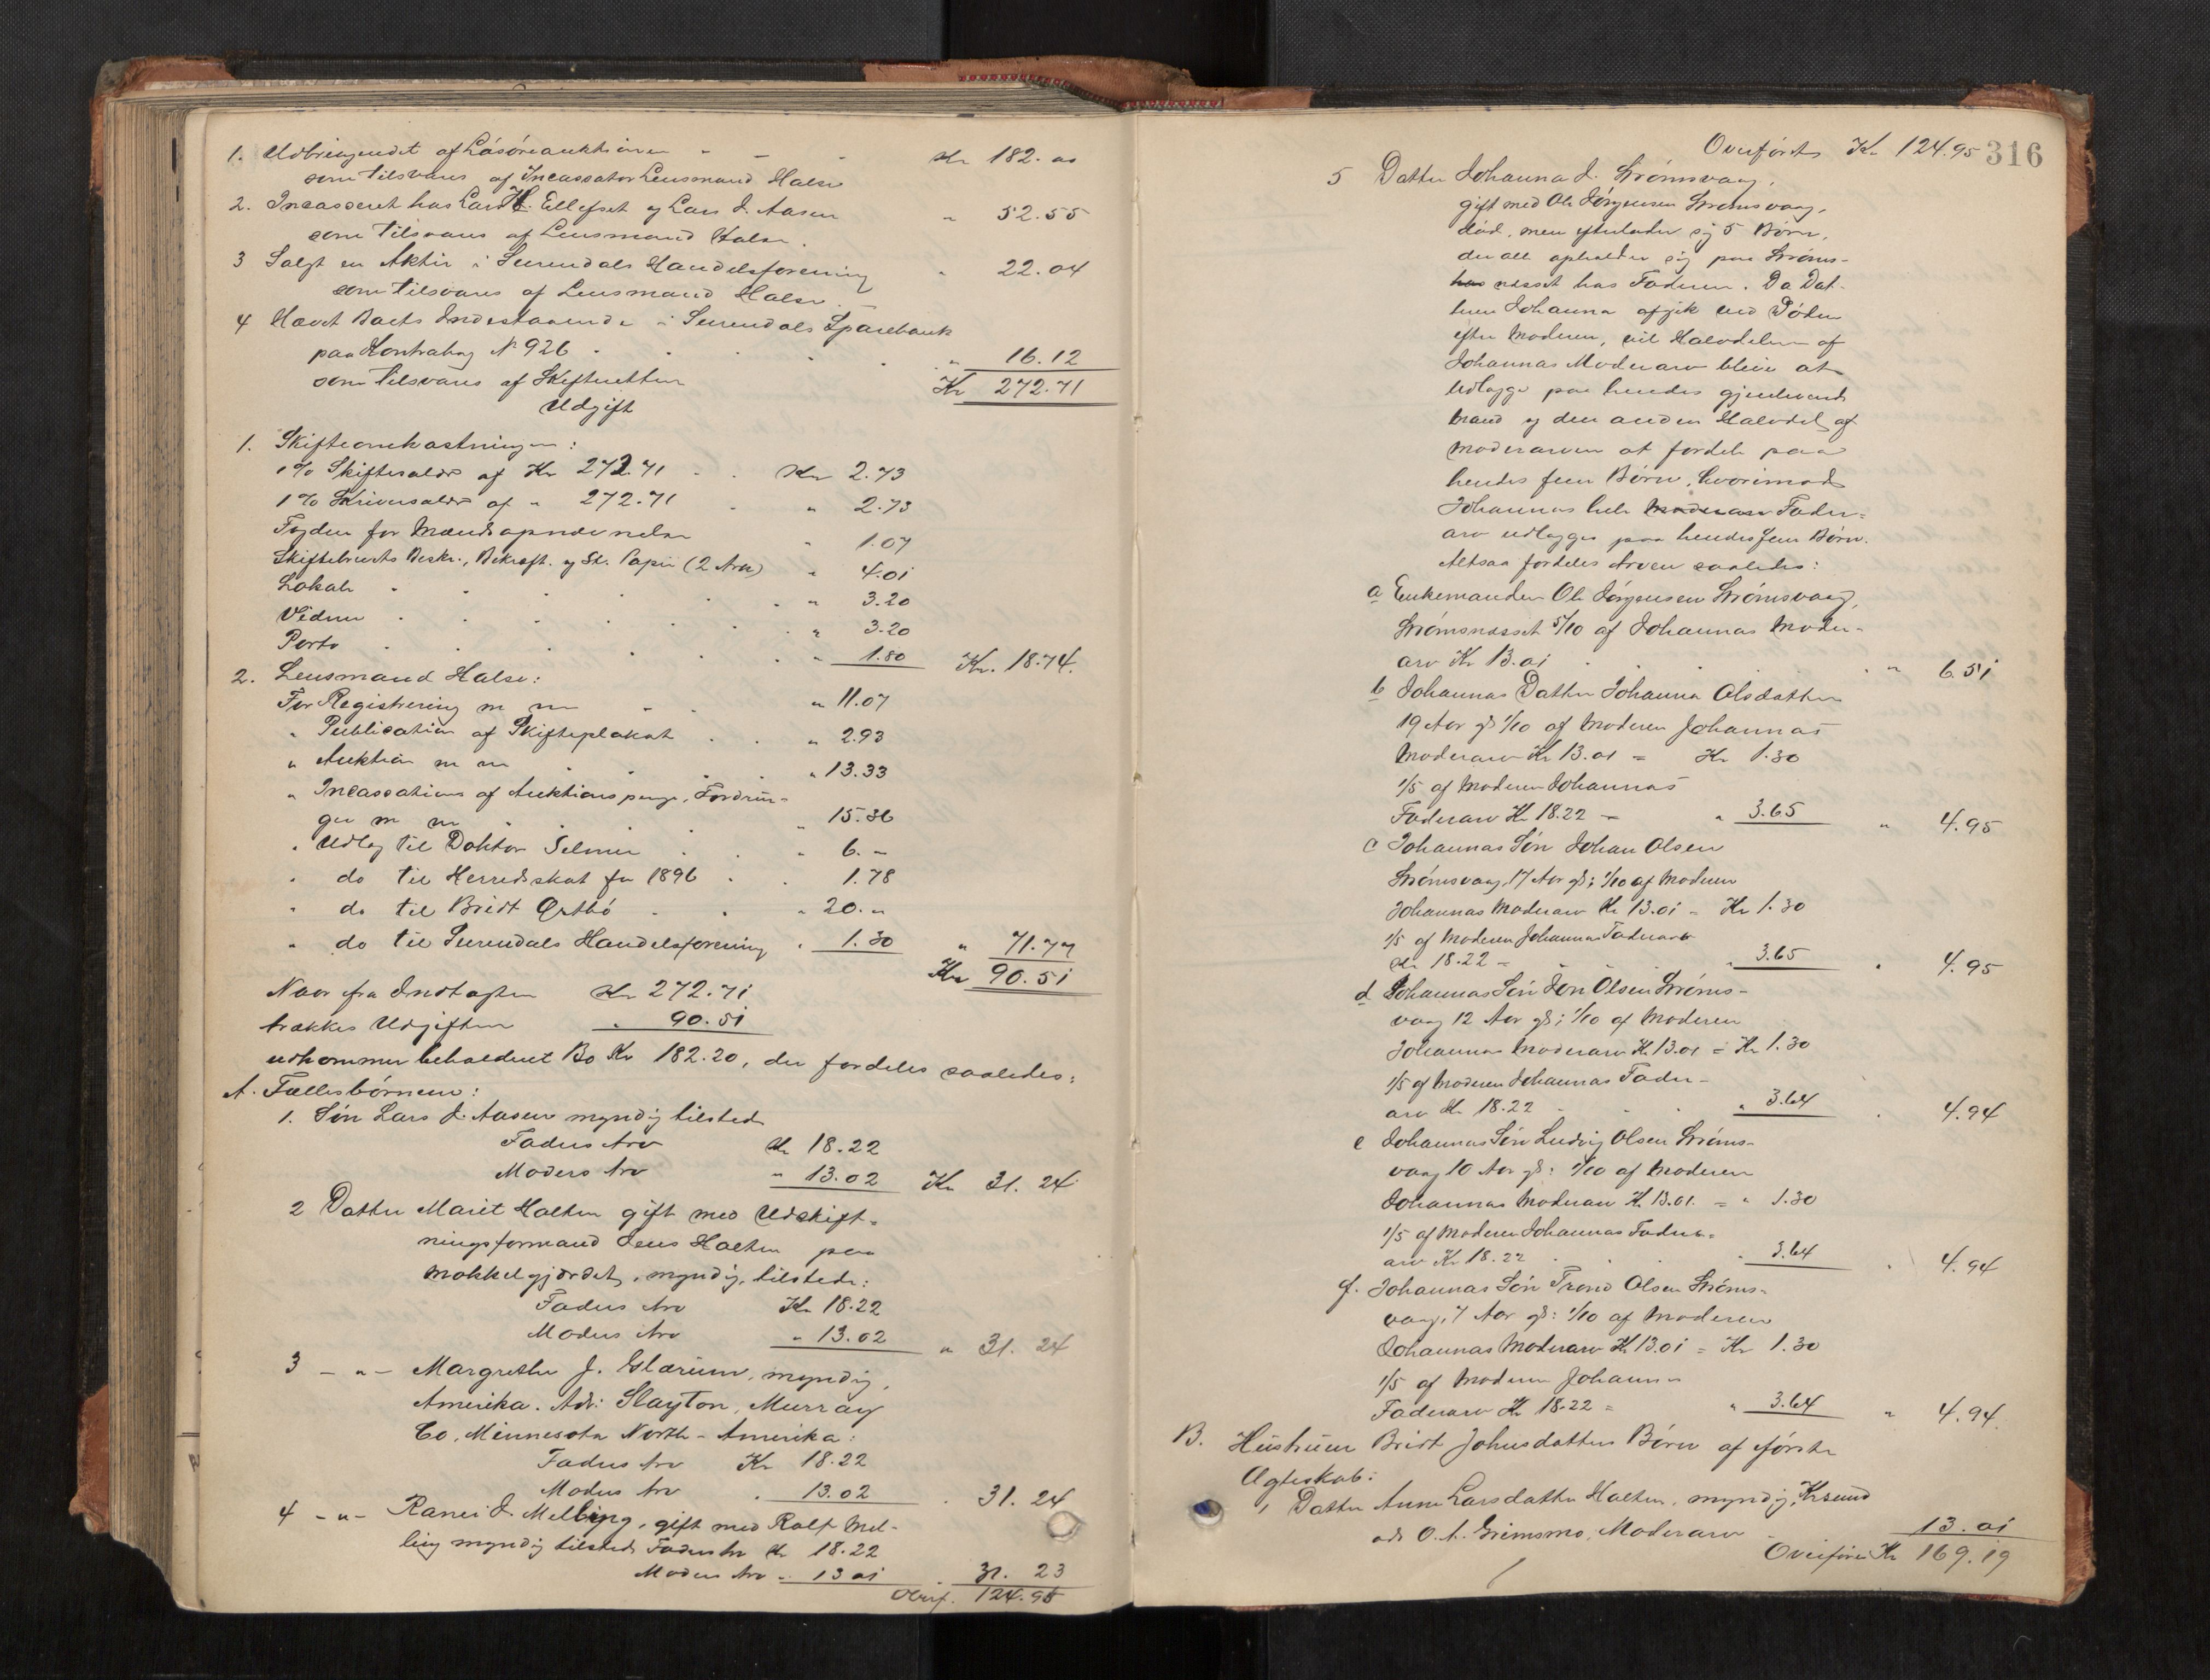 1. Udbringendet af Løsøreauktionen - - - Kr 182.00
som tilsvares af Incassator Lensmand Halse
2. Incasseret hos Lars H. Ellefset og Lars J. Aasen " 52.55
som tilsvares af Lensmand Halse.
3 Solgt en Aktie i Surendals Handelsforening " 22.04
som tilsvares af Lensmand Halse
4 Hævet Boets Indestaaende i Surendals Sparebank
paa Kontrabog No 926 . . . . " 16.12
som tilsvares af Skifteretten Kr 272.71
Udgift
1. Skifteomkostninger:
1 % Skiftesalær af Kr 272.71 . . Kr 2.73
1 % Skriversalær af " 272.71 . " 2.73
Fogden for Mandsopnævnelse " 1.07
Skiftebrevets Beskr., Bekræft. og St. Papir (2 Ark) " 4.01
Lokale . . . . . " 3.20
Vidner . . . . . " 3.20
Porto . . . . . " 1.80 Kr. 18.74.
2. Lensmand Halse:
For Registrering m m . . " 11.07
" Publication af Skifteplakat . . " 2.93
" Auktion m m . . . " 13.33
" Incassation af Auktionspenge, Fordrin=
ger m m . . " 15.36
" Udlæg til Doktor Selmer . . " 6.-
" do til Herredskat for 1896 . . 1.78
" do til Bridt Ørthø . . " 20."
" do til Surendals Handelsforening " 1.30 " 71.77
Kr 90.51
Naar fra Indtægten Kr 272.71
trækkes Udgiften " 90.51
udkommer beholdent Bo Kr 182.20, der fordeles saaledes:
A. Fællesbørnene:
1. Søn Lars J. Aasen myndig tilstede
Faders Arv Kr 18.22
Moders Arv " 13.02 Kr 31.24
2 Datter Marit Holten gift med Udskift=
ningsformand Jens Holten paa
Mokkelgjærdet, myndig, tilstede:
Faders Arv Kr 18.22
Moders Arv " 13.02 " 31.24
3 - " - Margrethe J. Glærum, myndig,
Amerika. Adr: Slayton, Murray
Co. Minnesota North-Amerika:
Faders Arv Kr 18.22
Moders Arv . 13.02 . 31.24
4 - " - Ranei J. Melling, gift med Rolf Mel-
ling myndig tilstede Faders Arv Kr 18.22
Moders Arv " 13 01 . 31.23
Overf. 124.95
Overførte Kr 124.95 316
5 Datter Johanna J. Strømsvaag,
gift med Ole Jørgensen Strømsvaag,
død, men efterlader sig 5 Børn,
der alle opholder sig paa Strøms-
næsset hos Faderen. Da Dat-
teren Johanna afgik ved Døden
efter Moderen, vil Halvdelen af
Johannas Moderarv blive at
udlægge paa hendes gjenlevende
Mand og den anden Halvdel af
Moderarven at fordele paa
hendes fem Børn, hvorimod
Johannas hele Moderarv Fader=
arv udlægges paa hendes fem Børn.
Altsaa fordeles Arven saaledes:
a Enkemanden Ole Jørgensen Strømsvaag,
Strømsnæsset 5/10 af Johannas Moder-
arv Kr 13.01 . . . . " 6.51
b Johannas Datter Johanna Olsdatter
19 Aar gl 1/10 af Moderen Johannas
Moderarv Kr 13.01 = Kr 1.30
1/5 af Moderen Johannas
Faderarv Kr 18.22 = " 3.65 " 4.95
c Johannas Søn Johan Olsen
Strømsvaag, 17 Aar gl; 1/10 af Moderen
Johannas Moderarv Kr 13.01 = Kr 1.30
1/5 af Moderen Johannas Faderarv
Kr 18.22 = . . " 3.65 " 4.95
d Johannas Søn Jon Olsen Strøms-
vaag 12 Aar gl; 1/10 af Moderen
Johannas Moderarv Kr 13.01 = Kr 1.30
1/5 af Moderen Johannas Fader-
arv Kr 18.22 . . . " 3.64 . 4.94
e Johannas Søn Ludvig Olsen Strøms-
vaag 10 Aar gl: 1/10 af Moderen
Johannas Moderarv Kr 13.01. = " 1.30
1/5 af Moderen Johannas Fader=
arv Kr 18.22 . . . " 3.64 " 4.94
f. Johannas Søn Trond Olsen Strøms-
vaag, 7 Aar gl: 1/10 af Moderen
Johannas Moderarv Kr 13.01 = Kr 1.30
1/5 af Moderen Johannas
Faderarv Kr 18.22 = " 3.64 " 4.94.
B. Hustruen Bridt Johnsdatters Børn af første
Ægteskab:
1 Datter Anne Larsdatter Holten, myndig, Krsund
adr O. A. Grimsmo, Moderarv - 13.01
Overføres Kr 169.19